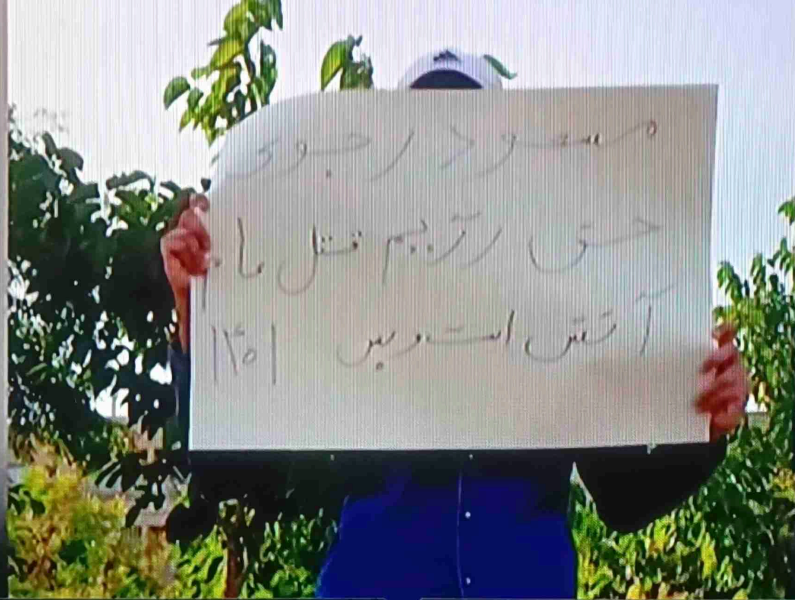 مسعود رجوی
حق رژیم قتل عام
آتش است و بس ۱۴۰۱